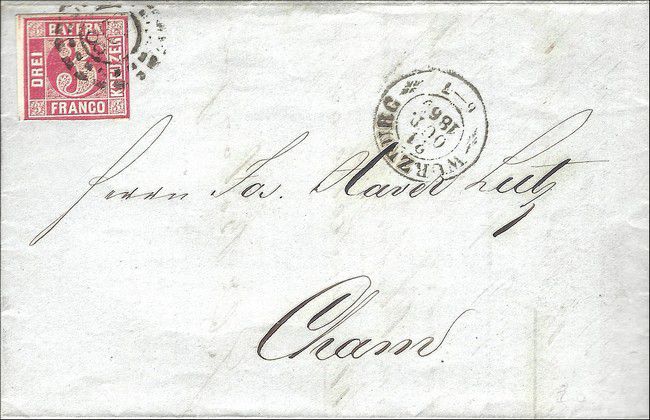 BAYERN
DREI
3
KREUZER
FRANCO
WÜRZBURG
21
OCT
186
Herrn Jos. Xaver Lutz
Cham.